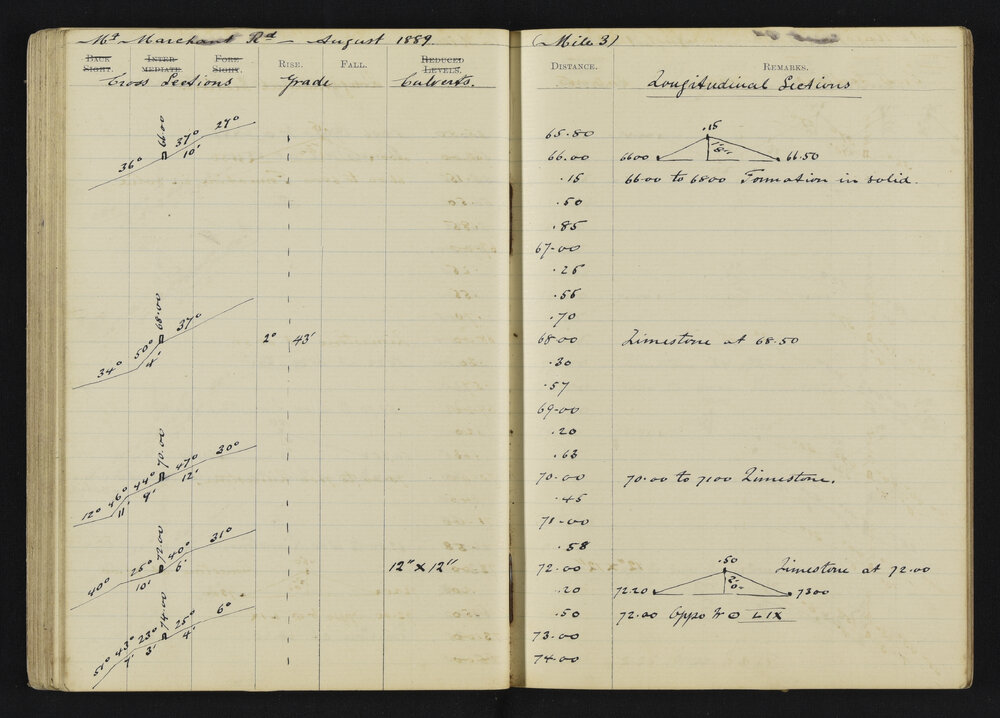 Mt Marchant Rd — August 1889.
BACK SIGHT. INTERMEDIATE. FORE SIGHT. RISE. FALL. REDUCED LEVELS.
Cross Sections Grade Culverts.
36° 66.00 37° 10' 27°
34° 50° 4' 68.00 37°
2° 43'
12° 46° 11' 44° 9' 70.00 47° 12' 30°
40° 25° 10' 72.00 40° 6' 31°
12" x 12"
51° 43° 7' 23° 3' 74.00 25° 4' 6°
(Mile 3)
DISTANCE. REMARKS.
Longitudinal Sections
65.80 .15
66.00 6600 66.50
.15 66.00 to 68.00 Formation in solid.
.50
.85
67.00
.25
.55
.70
68.00 Limestone at 68.50
.30
.57
69.00
.20
.63
70.00 70.00 to 71.00 Limestone.
.45
71.00
.58
72.00 .50 Limestone at 72.00
.20 72.20 2' 0" 73.00
.50 72.00 Oppo LIX
73.00
74.00